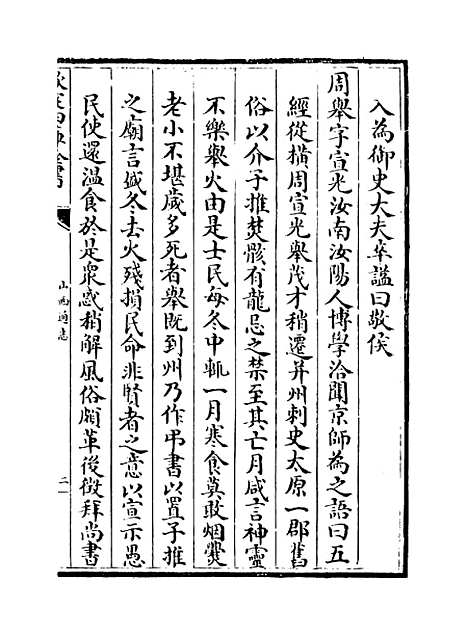 入為御史大夫卒諡曰敬侯
周舉字宣光汝南汝陽人博學洽聞京師為之語曰五
經從橫周宣光舉茂才稍遷并州刺史太原一郡舊
俗以介子推焚骸有龍忌之禁至其亡月咸言神靈
不樂舉火由是士民每冬中輒一月寒食莫敢烟爨
老小不堪歲多死者舉既到州乃作弔書以置子推
之廟言盛冬去火殘損民命非賢者之意以宣示愚
民使還溫食於是衆惑稍解風俗頗革後徵拜尚書
欽定四庫全書
山西通志
二